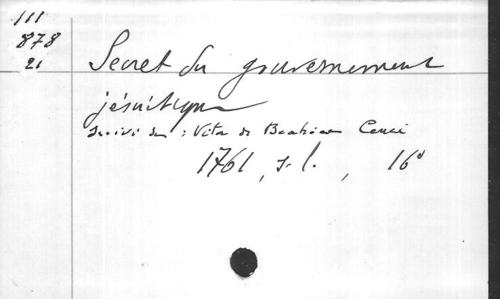 111
878
21
Secret du gouvernement
jésuitique
suivi du : Vita di Beatrice Cenci
1761, s. l., 16°